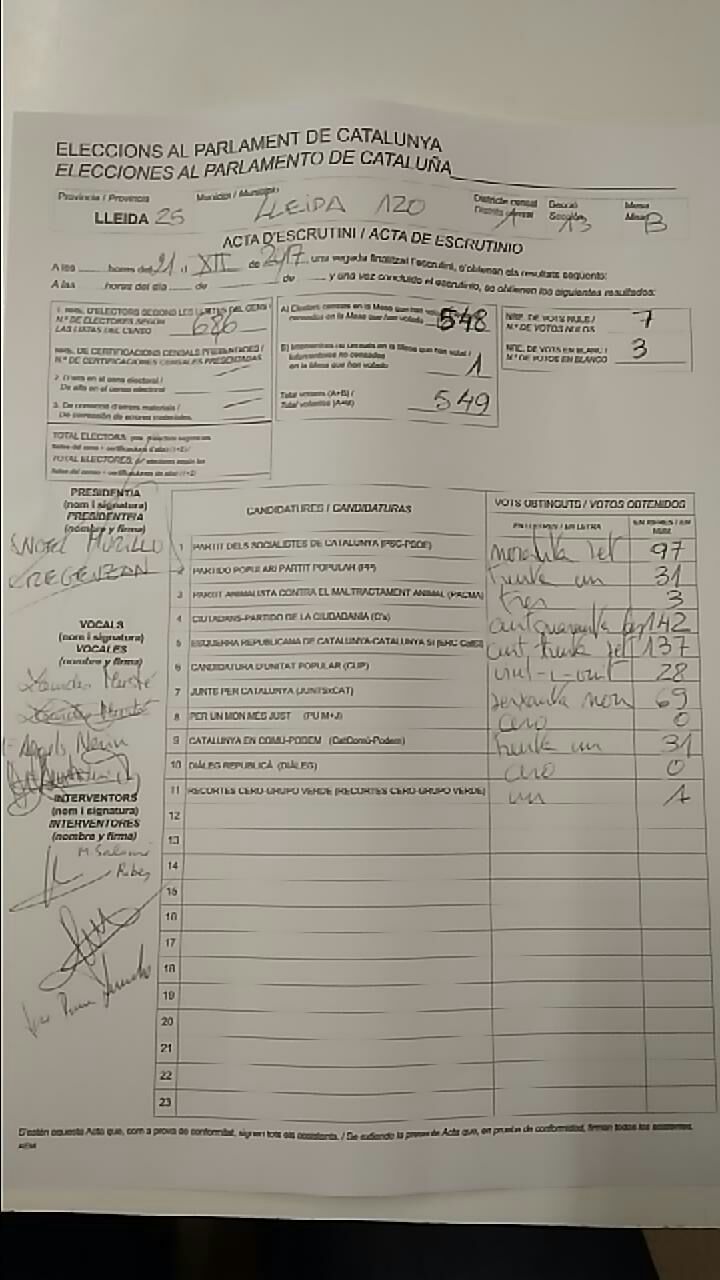 ELECCIONS AL PARLAMENT DE CATALUNYA
ELECCIONES AL PARLAMENTO DE CATALUÑA
Provincia / Provincia
Municipi / Municipio
Districte censal
Secció
Mesa
LLEIDA 25
LLEIDA 120
Distrito censal 1
Sección 13
Mesa B
ACTA D'ESCRUTINI / ACTA DE ESCRUTINIO
A les hores del 21 d XII de 2017, una vegada finalitzat l'escrutini, s'obtenen els resultats següents:
A las horas del día de de y una vez concluido el escrutinio, se obtienen los siguientes resultados:
1. NRE. D'ELECTORS SEGONS LES LLISTES DEL CENS /
N.º DE ELECTORES SEGÚN
LAS LISTAS DEL CENSO 686
NRE. DE CERTIFICACIONS CENSALS PRESENTADES /
N.º DE CERTIFICACIONES CENSALES PRESENTADAS
2. D'alta en el cens electoral /
De alta en el censo electoral
3. De correcció d'errors materials /
De corrección de errores materiales
A) Electors censats en la Mesa que han votat /
censados en la Mesa que han votado 548
B) Interventors no censats en la Mesa que han votat /
Interventores no censados
en la Mesa que han votado 1
Total votants (A+B) /
Total votantes (A+B) 549
NRE. DE VOTS NULS /
N.º DE VOTOS NULOS 7
NRE. DE VOTS EN BLANC /
N.º DE VOTOS EN BLANCO 3
TOTAL ELECTORS
TOTAL ELECTORES
PRESIDENT/A
(nom i signatura)
PRESIDENTE/A
(nombre y firma)
MURILLO
VOCALS
(nom i signatura)
VOCALES
(nombre y firma)
INTERVENTORS
(nom i signatura)
INTERVENTORES
(nombre y firma)
M. Salomé
CANDIDATURES / CANDIDATURAS
VOTS OBTINGUTS / VOTOS OBTENIDOS
EN LLETRES / EN LETRA
EN XIFRES / EN NÚM.
1 PARTIT DELS SOCIALISTES DE CATALUNYA (PSC-PSOE) noranta set 97
2 PARTIDO POPULAR/ PARTIT POPULAR (PP) trenta un 31
3 PARTIT ANIMALISTA CONTRA EL MALTRACTAMENT ANIMAL (PACMA) tres 3
4 CIUTADANS-PARTIDO DE LA CIUDADANÍA (C's) cent quaranta dos 142
5 ESQUERRA REPUBLICANA DE CATALUNYA-CATALUNYA SÍ (ERC-CatSí) cent trenta set 137
6 CANDIDATURA D'UNITAT POPULAR (CUP) vint-i-vuit 28
7 JUNTS PER CATALUNYA (JUNTSxCAT) seixanta nou 69
8 PER UN MÓN MÉS JUST (PUM+J) cero 0
9 CATALUNYA EN COMÚ-PODEM (CatComú-Podem) trenta un 31
10 DIÀLEG REPUBLICÀ (DIÀLEG) cero 0
11 RECORTES CERO-GRUPO VERDE (RECORTES CERO-GRUPO VERDE) un 1
12
13
14
15
16
17
18
19
20
21
22
23
S'estén aquesta Acta que, com a prova de conformitat, signen tots els assistents. / Se extiende la presente Acta que, en prueba de conformidad, firman todos los asistentes.